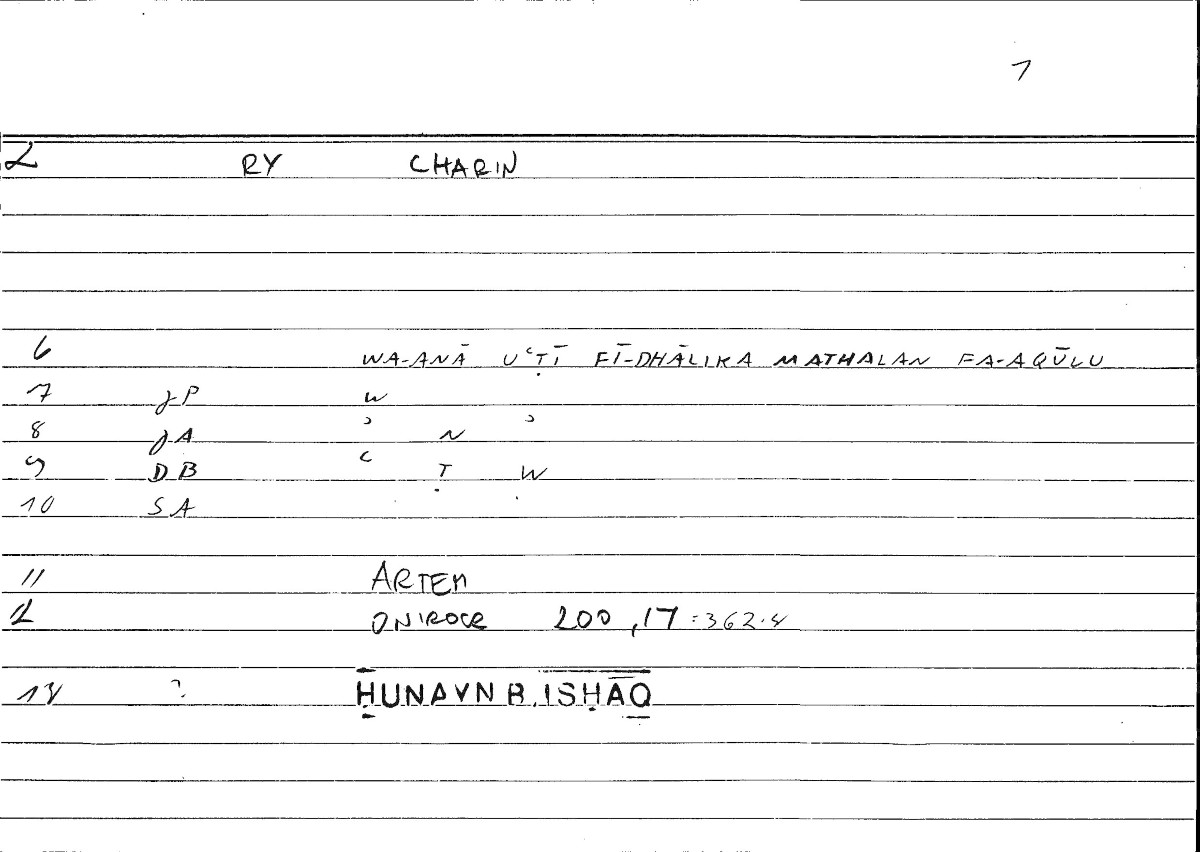 7
2 RY CHARIN
6 WA-ANĀ UʿṬĪ FĪ-DHĀLIKA MATHALAN FA-AQŪLU
7 JP W
8 JA ʾ N ʾ
9 DB ʿ Ṭ W
10 SA
11 ARTEM
12 ONIROCR 200,17 = 362.4
13 ? ḤUNAYN B. ISḤĀQ